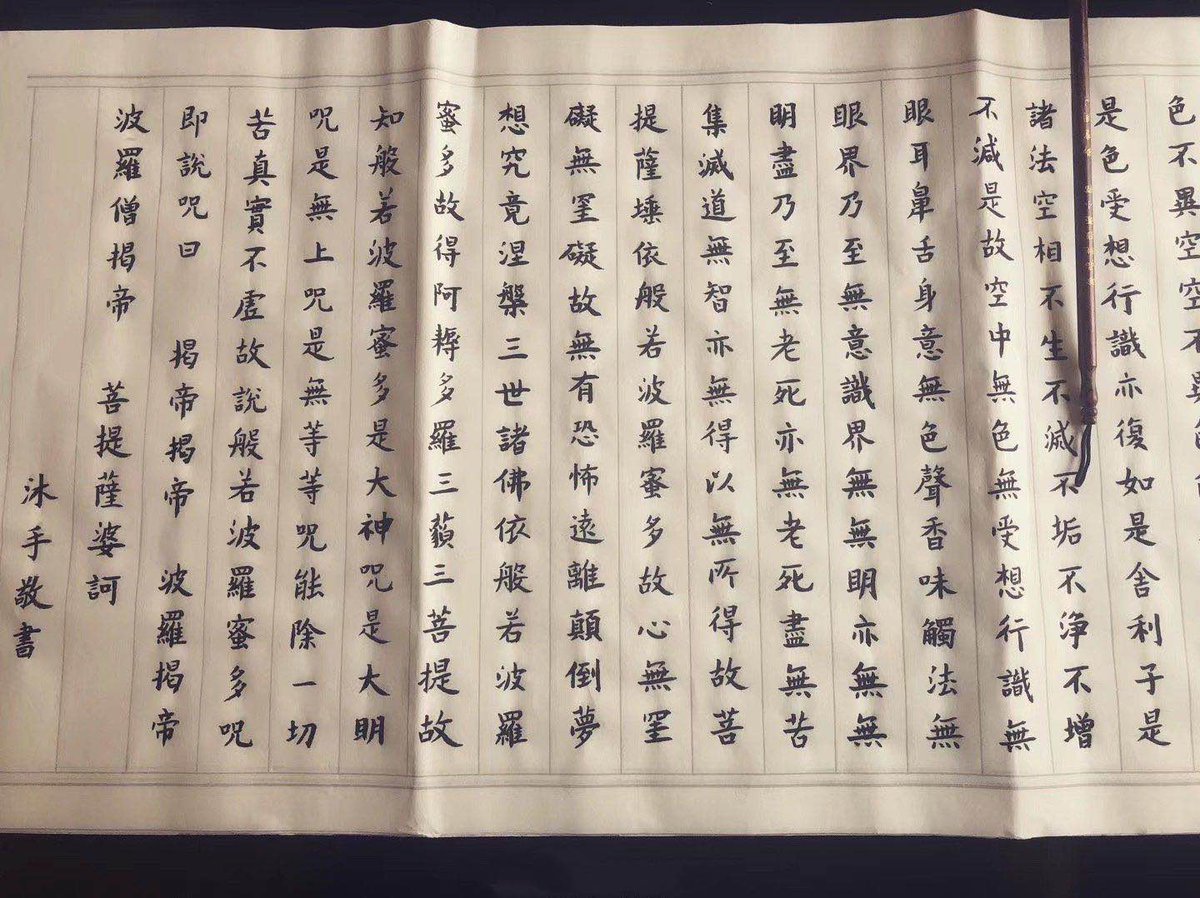 色不異空空不異
是色受想行識亦復如是舍利子是
諸法空相不生不滅不垢不淨不增
不減是故空中無色無受想行識無
眼耳鼻舌身意無色聲香味觸法無
眼界乃至無意識界無無明亦無無
明盡乃至無老死亦無老死盡無苦
集滅道無智亦無得以無所得故菩
提薩埵依般若波羅蜜多故心無罣
礙無罣礙故無有恐怖遠離顛倒夢
想究竟涅槃三世諸佛依般若波羅
蜜多故得阿耨多羅三藐三菩提故
知般若波羅蜜多是大神咒是大明
咒是無上咒是無等等咒能除一切
苦真實不虛故說般若波羅蜜多咒
即說咒曰 揭帝揭帝 波羅揭帝
波羅僧揭帝 菩提薩婆訶
沐手敬書